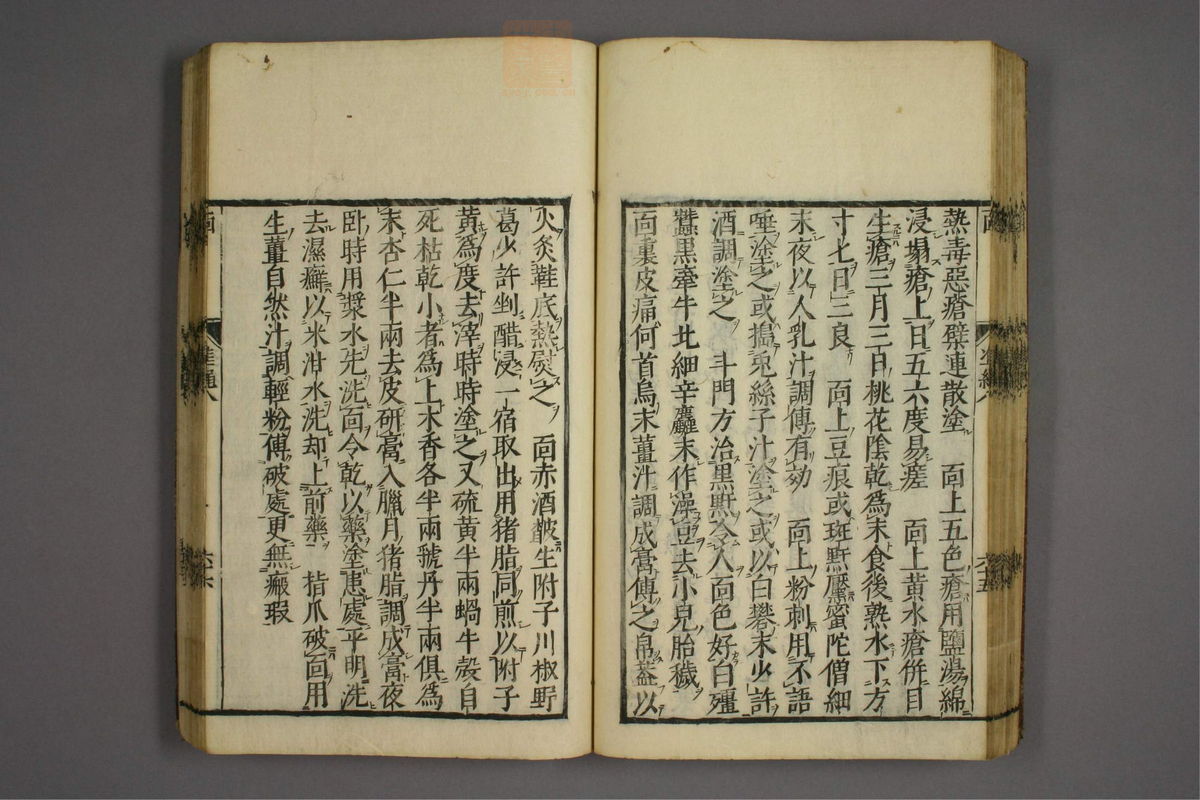 熱毒惡瘡櫱連散塗　靣上五色瘡用鹽湯綿
浸塌瘡上日五六度易瘥　靣上黄水瘡併目
生瘡三月三日桃花陰乾爲末食後熟水下方
寸七日三良　靣上豆痕或斑䵟黶蜜陀僧細
末夜以人乳汁調傅有効　靣上粉刺用不語
唾塗之或搗兎絲子汁塗之或以白礬末少許
酒調塗之　斗門方治黒䵟令人靣色好白殭
蠶黒牽牛北細辛麤末作澡豆去小兒胎穢
靣裏皮痛何首烏末薑汁調成膏傅之帛葢以
火灸鞋底熱熨之　靣赤酒皶生附子川椒野
葛少許剉醋浸一宿取出用猪脂同煎以附子
黄爲度去滓時時塗之又硫黄半兩蝸牛殻自
死枯乾小者爲上木香各半兩虢丹半兩俱爲
末杏仁半兩去皮研膏入臘月猪脂調成膏夜
卧時用漿水先洗靣令乾以藥塗患處平明洗
去濕癬以米泔水洗却上前藥　指爪破靣用
生薑自然汁調輕粉傅破處更無瘢瑕